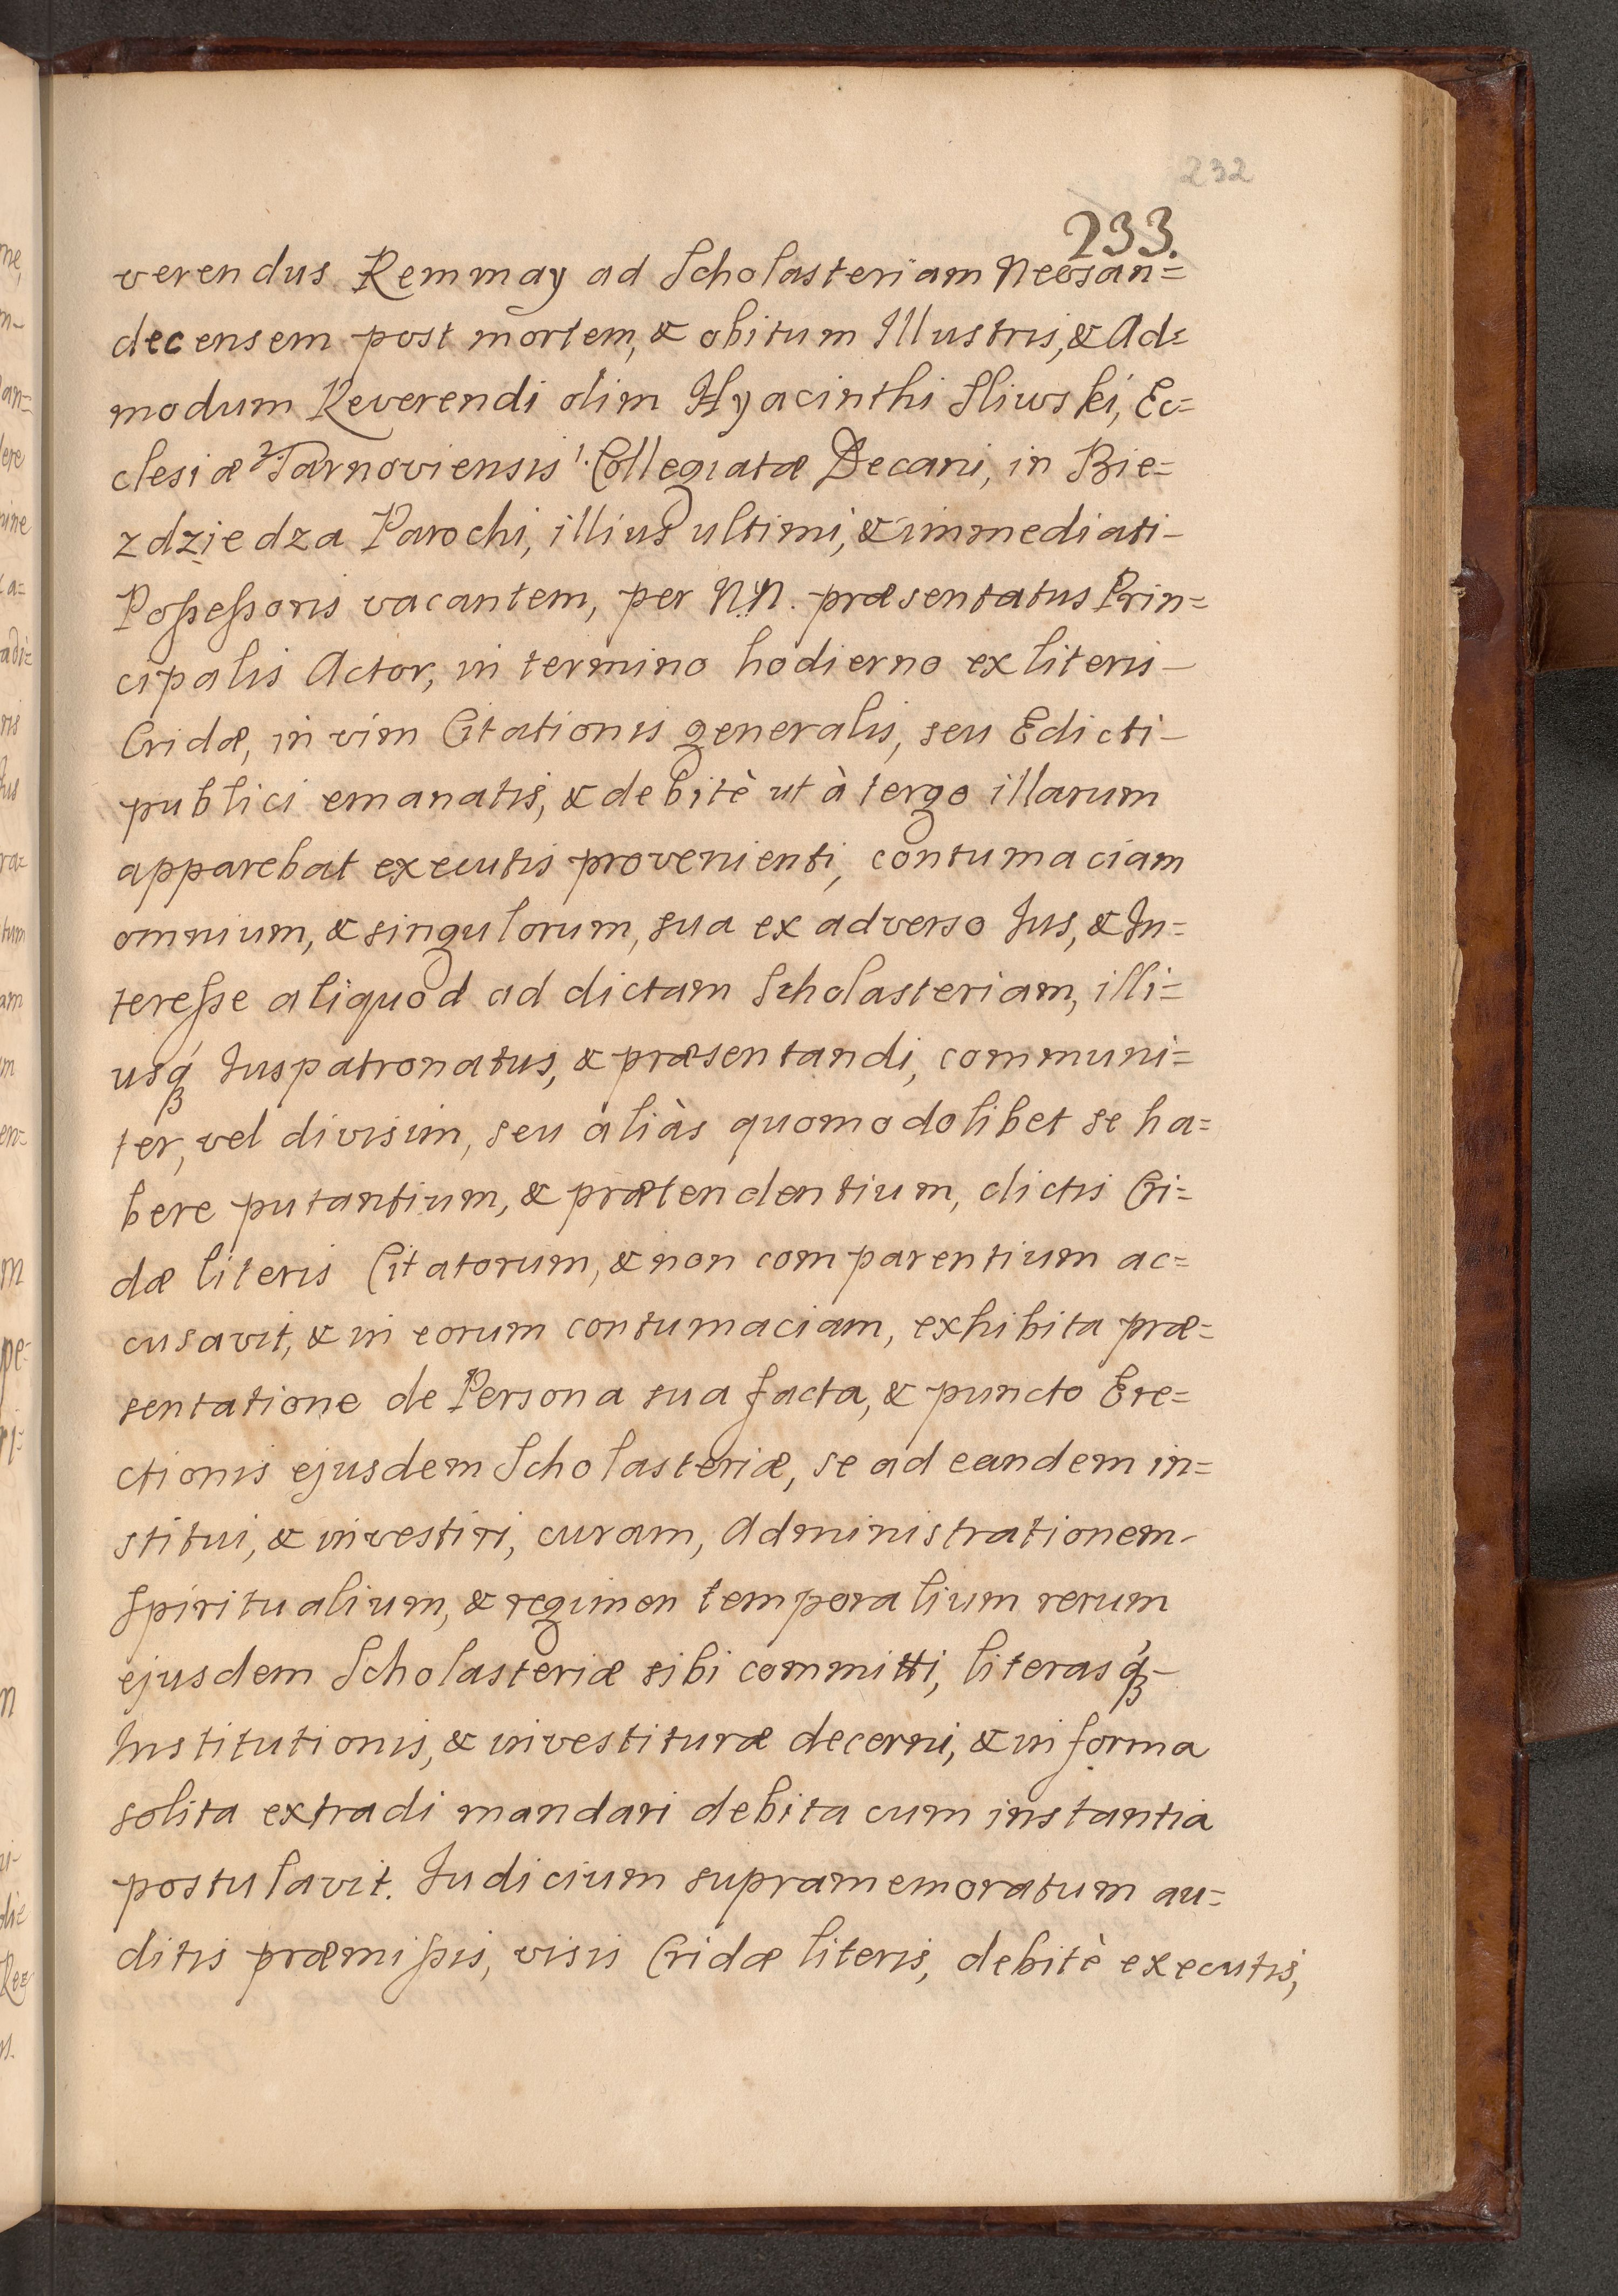 232
233.
verendus Remmay ad Scholasteriam Neosan=
decensem post mortem, & obitum Illustris, & Ad=
modum Reverendi olim Hyacinthi Sliwski, Ec=
clesiæ ²Tarnoviensis ¹·Collegiatæ Decani, in Bie=
zdziedza Parochi, illius ultimi, & immediati-
Poſseſsoris vacantem, per N.N. præsentatus Prin=
cipalis Actor, in termino hodierno ex literis-
Cridæ, in vim Citationis generalis, seu Edicti-
publici emanatis, & debitè ut à tergo illarum
apparebat executis provenienti, contumaciam
omnium, & singulorum, sua ex adverso Jus, & In=
tereſse aliquod ad dictam Scholasteriam, illi=
usq́ꝫ Juspatronatus, & præsentandi, communi=
ter, vel divisim, seu aliàs quomodolibet se ha=
bere putantium, & prætendentium, dictis Cri=
dæ literis Citatorum, & non comparentium ac=
cusavit, & in eorum contumaciam, exhibita præ=
sentatione de Persona sua facta, & puncto Ere=
ctionis ejusdem Scholasteriæ, se ad eandem in=
stitui, & investiri, curam, Administrationem-
Spiritualium, & regimen temporalium rerum
ejusdem Scholasteriæ sibi committi, literasq́ꝫ-
Institutionis, & investituræ decerni, & in forma
solita extradi mandari debita cum instantia
postulavit. Judicium supramemoratum au=
ditis præmiſsis, visis Cridæ literis, debitè executis,